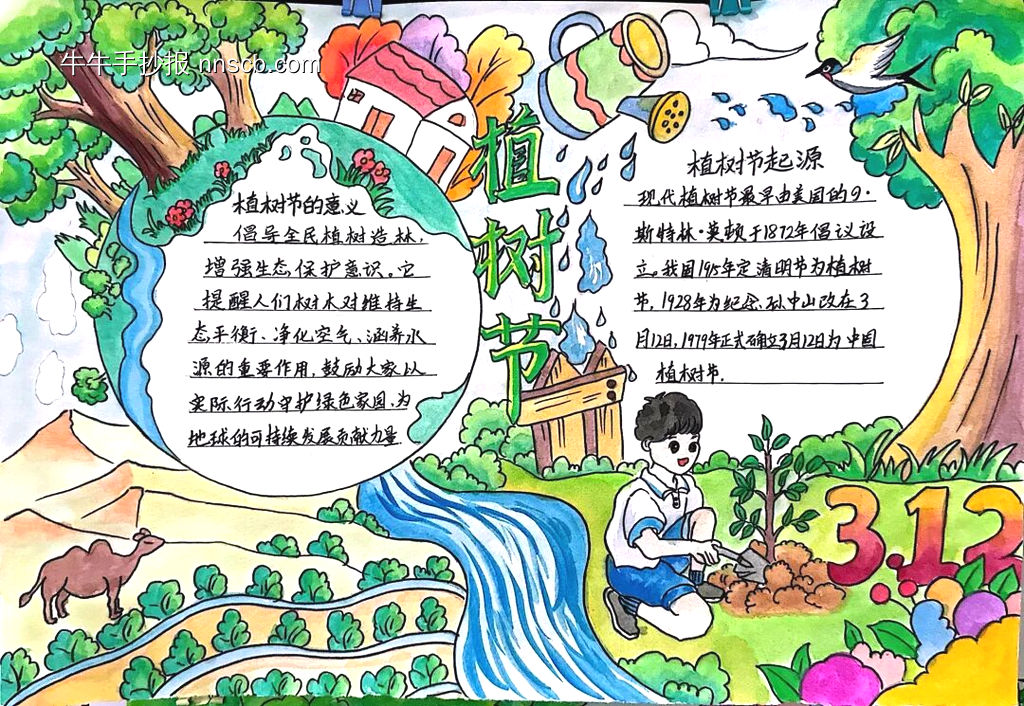 牛牛手抄报 nnscb.com
植树节
植树节的意义
倡导全民植树造林,
增强生态保护意识。它
提醒人们树木对维持生
态平衡、净化空气、涵养水
源的重要作用,鼓励大家以
实际行动守护绿色家园,为
地球的可持续发展贡献力量
植树节起源
现代植树节最早由美国的9·
斯特林·莫顿于1872年倡议设
立。我国1915年定清明节为植树
节,1928年为纪念孙中山改在3
月12日,1979年正式确立3月12日为中国
植树节.
3.12